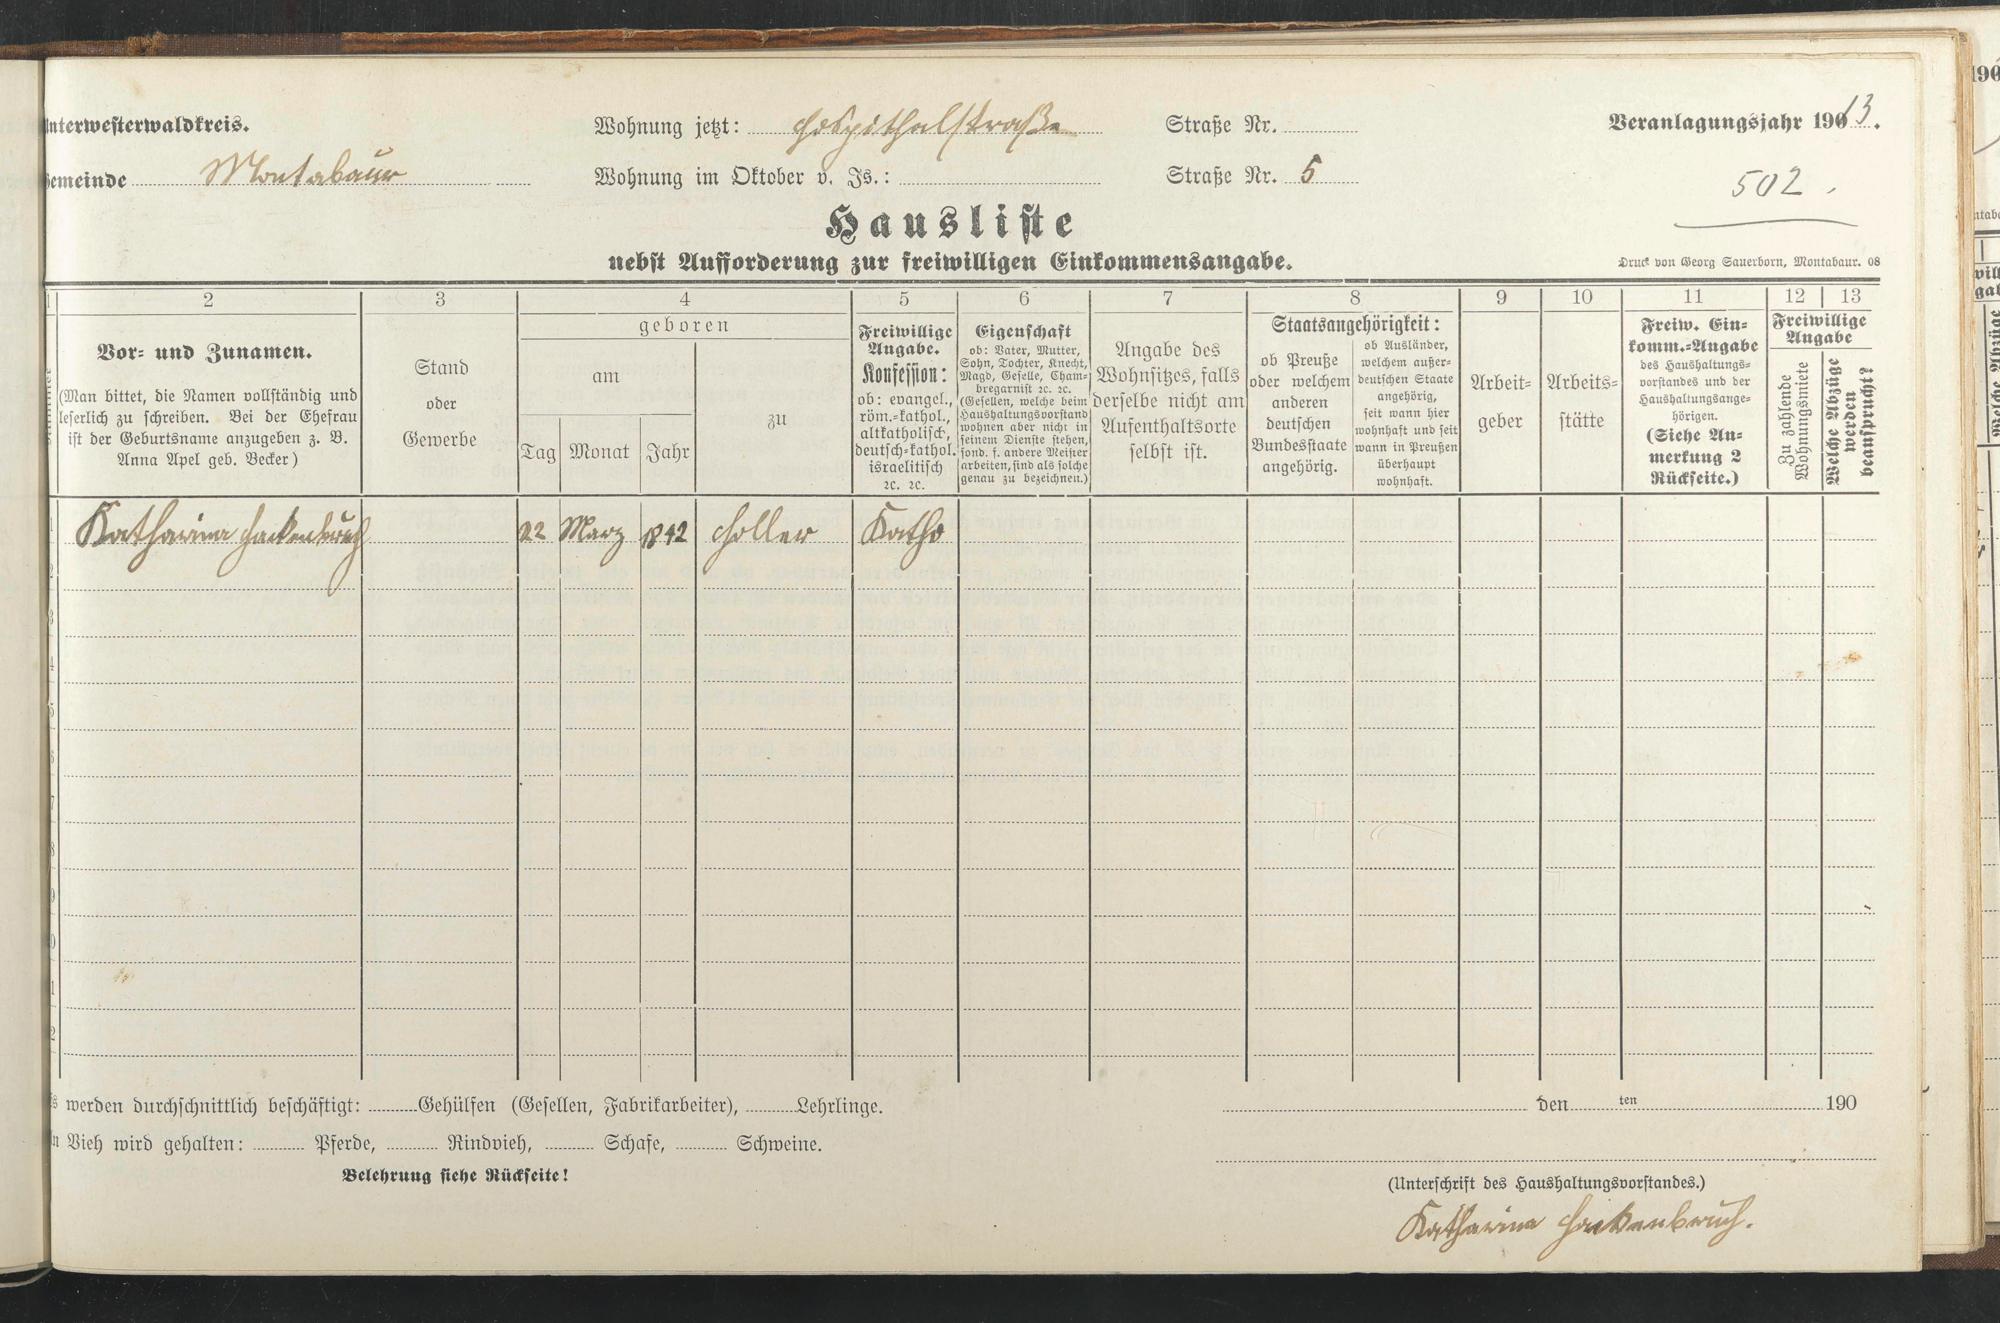 Unterwesterwaldkreis.
Wohnung jetzt: Hospithalstraße Straße Nr.
Veranlagungsjahr 1913.
Gemeinde Montabaur
Wohnung im Oktober v. Js.: Straße Nr. 5
502.
Hausliste
nebst Aufforderung zur freiwilligen Einkommensangabe.
Druck von Georg Sauerborn, Montabaur. 08
1 2 3 4 5 6 7 8 9 10 11 12 13
Vor- und Zunamen.
(Man bittet, die Namen vollständig und
leserlich zu schreiben. Bei der Ehefrau
ist der Geburtsname anzugeben z. B.
Anna Apel geb. Becker)
Stand
oder
Gewerbe
geboren
am
Tag Monat Jahr
zu
Freiwillige
Angabe.
Konfession:
ob: evangel.,
röm.-kathol.,
altkatholisch,
deutsch-kathol.
israelitisch
ꝛc. ꝛc.
Eigenschaft
ob: Vater, Mutter,
Sohn, Tochter, Knecht,
Magd, Geselle, Cham-
bregarnist ꝛc. ꝛc.
(Gesellen, welche beim
Haushaltungsvorstand
wohnen aber nicht in
seinem Dienste stehen,
sond. f. andere Meister
arbeiten, sind als solche
genau zu bezeichnen.)
Angabe des
Wohnsitzes, falls
derselbe nicht am
Aufenthaltsorte
selbst ist.
Staatsangehörigkeit:
ob Preuße
oder welchem
anderen
deutschen
Bundesstaate
angehörig.
ob Ausländer,
welchem außer-
deutschen Staate
angehörig,
seit wann hier
wohnhaft und seit
wann in Preußen
überhaupt
wohnhaft.
Arbeit-
geber
Arbeits-
stätte
Freiw. Ein-
komm.-Angabe
des Haushaltungs-
vorstandes und der
Haushaltungsange-
hörigen.
(Siehe An-
merkung 2
Rückseite.)
Freiwillige
Angabe
Zu zahlende
Wohnungsmiete
Welche Abzüge
werden
beansprucht?
1 Katharina Hackenbruch 22 März 1842 Holler Katho
2
3
4
5
6
7
8
9
0
1
2
Es werden durchschnittlich beschäftigt: Gehülfen (Gesellen, Fabrikarbeiter), Lehrlinge.
den ten 190
An Vieh wird gehalten: Pferde, Rindvieh, Schafe, Schweine.
Belehrung siehe Rückseite!
(Unterschrift des Haushaltungsvorstandes.)
Katharina Hackenbruch.